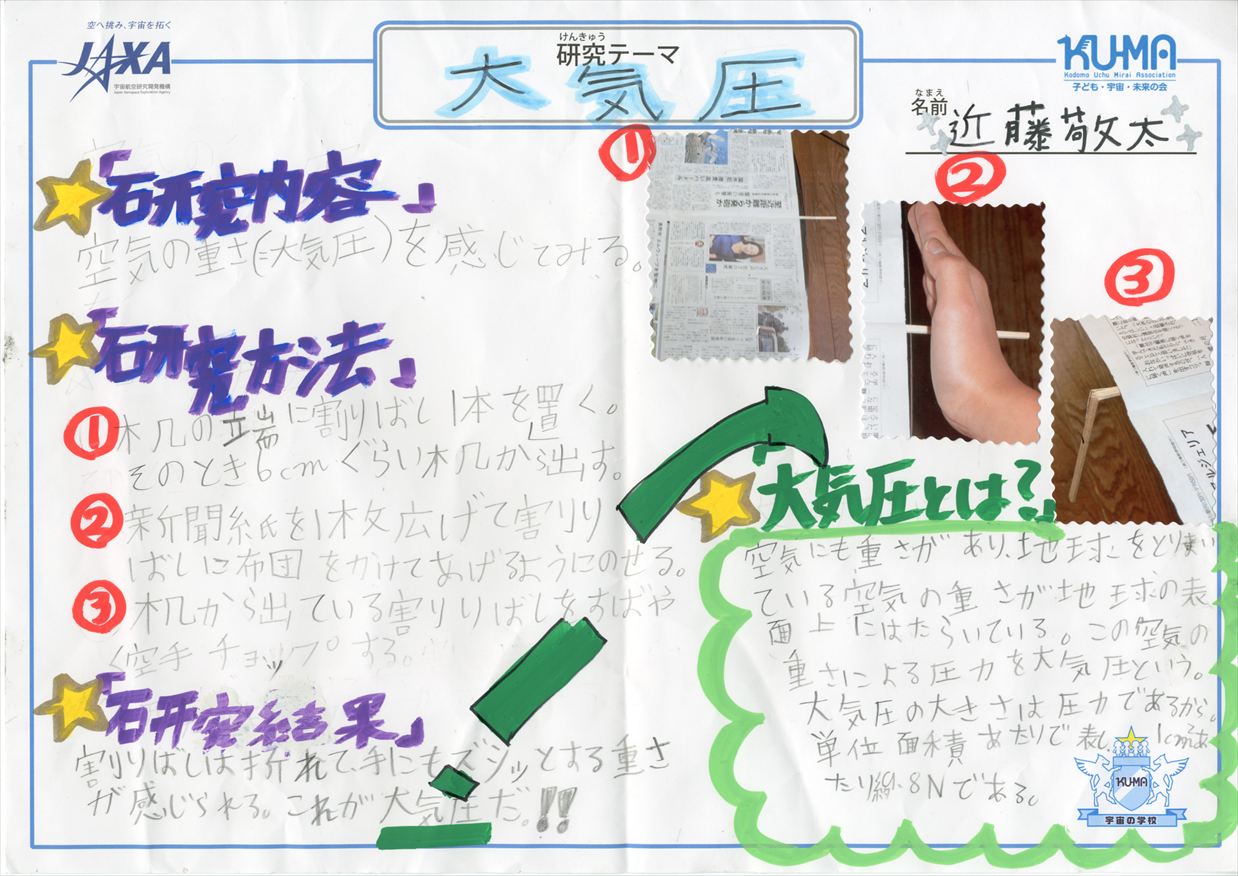 空へ挑み、宇宙を拓く
JAXA
宇宙航空研究開発機構
Japan Aerospace Exploration Agency
けんきゅう
研究テーマ
大気圧
KU-MA
Kodomo Uchu Mirai Association
子ども・宇宙・未来の会
なまえ
名前
近藤敬太
①
②
③
「研究内容」
空気の重さ(=大気圧)を感じてみる。
「研究方法」
①木机の端に割りばし1本を置く。
そのとき6cmぐらい木机から出す。
②新聞紙を1枚広げて割りり
ばしに布団をかけてあげるようにのせる。
③木机から出ている割りりばしをすばや
く空手チョップする。
「研究結果」
割りばしは折れて、手にもズシッとする重さ
が感じられる。これが大気圧だ。!!
「大気圧とは?」
空気にも重さがあり、地球をとりまい
ている空気の重さが地球の表
面上にはたらいている。この空気の
重さによる圧力を大気圧という。
大気圧の大きさは圧力であるから。
単位面積あたりで表し 1cmあ
たり約.8Nである。
KU-MA
宇宙の学校